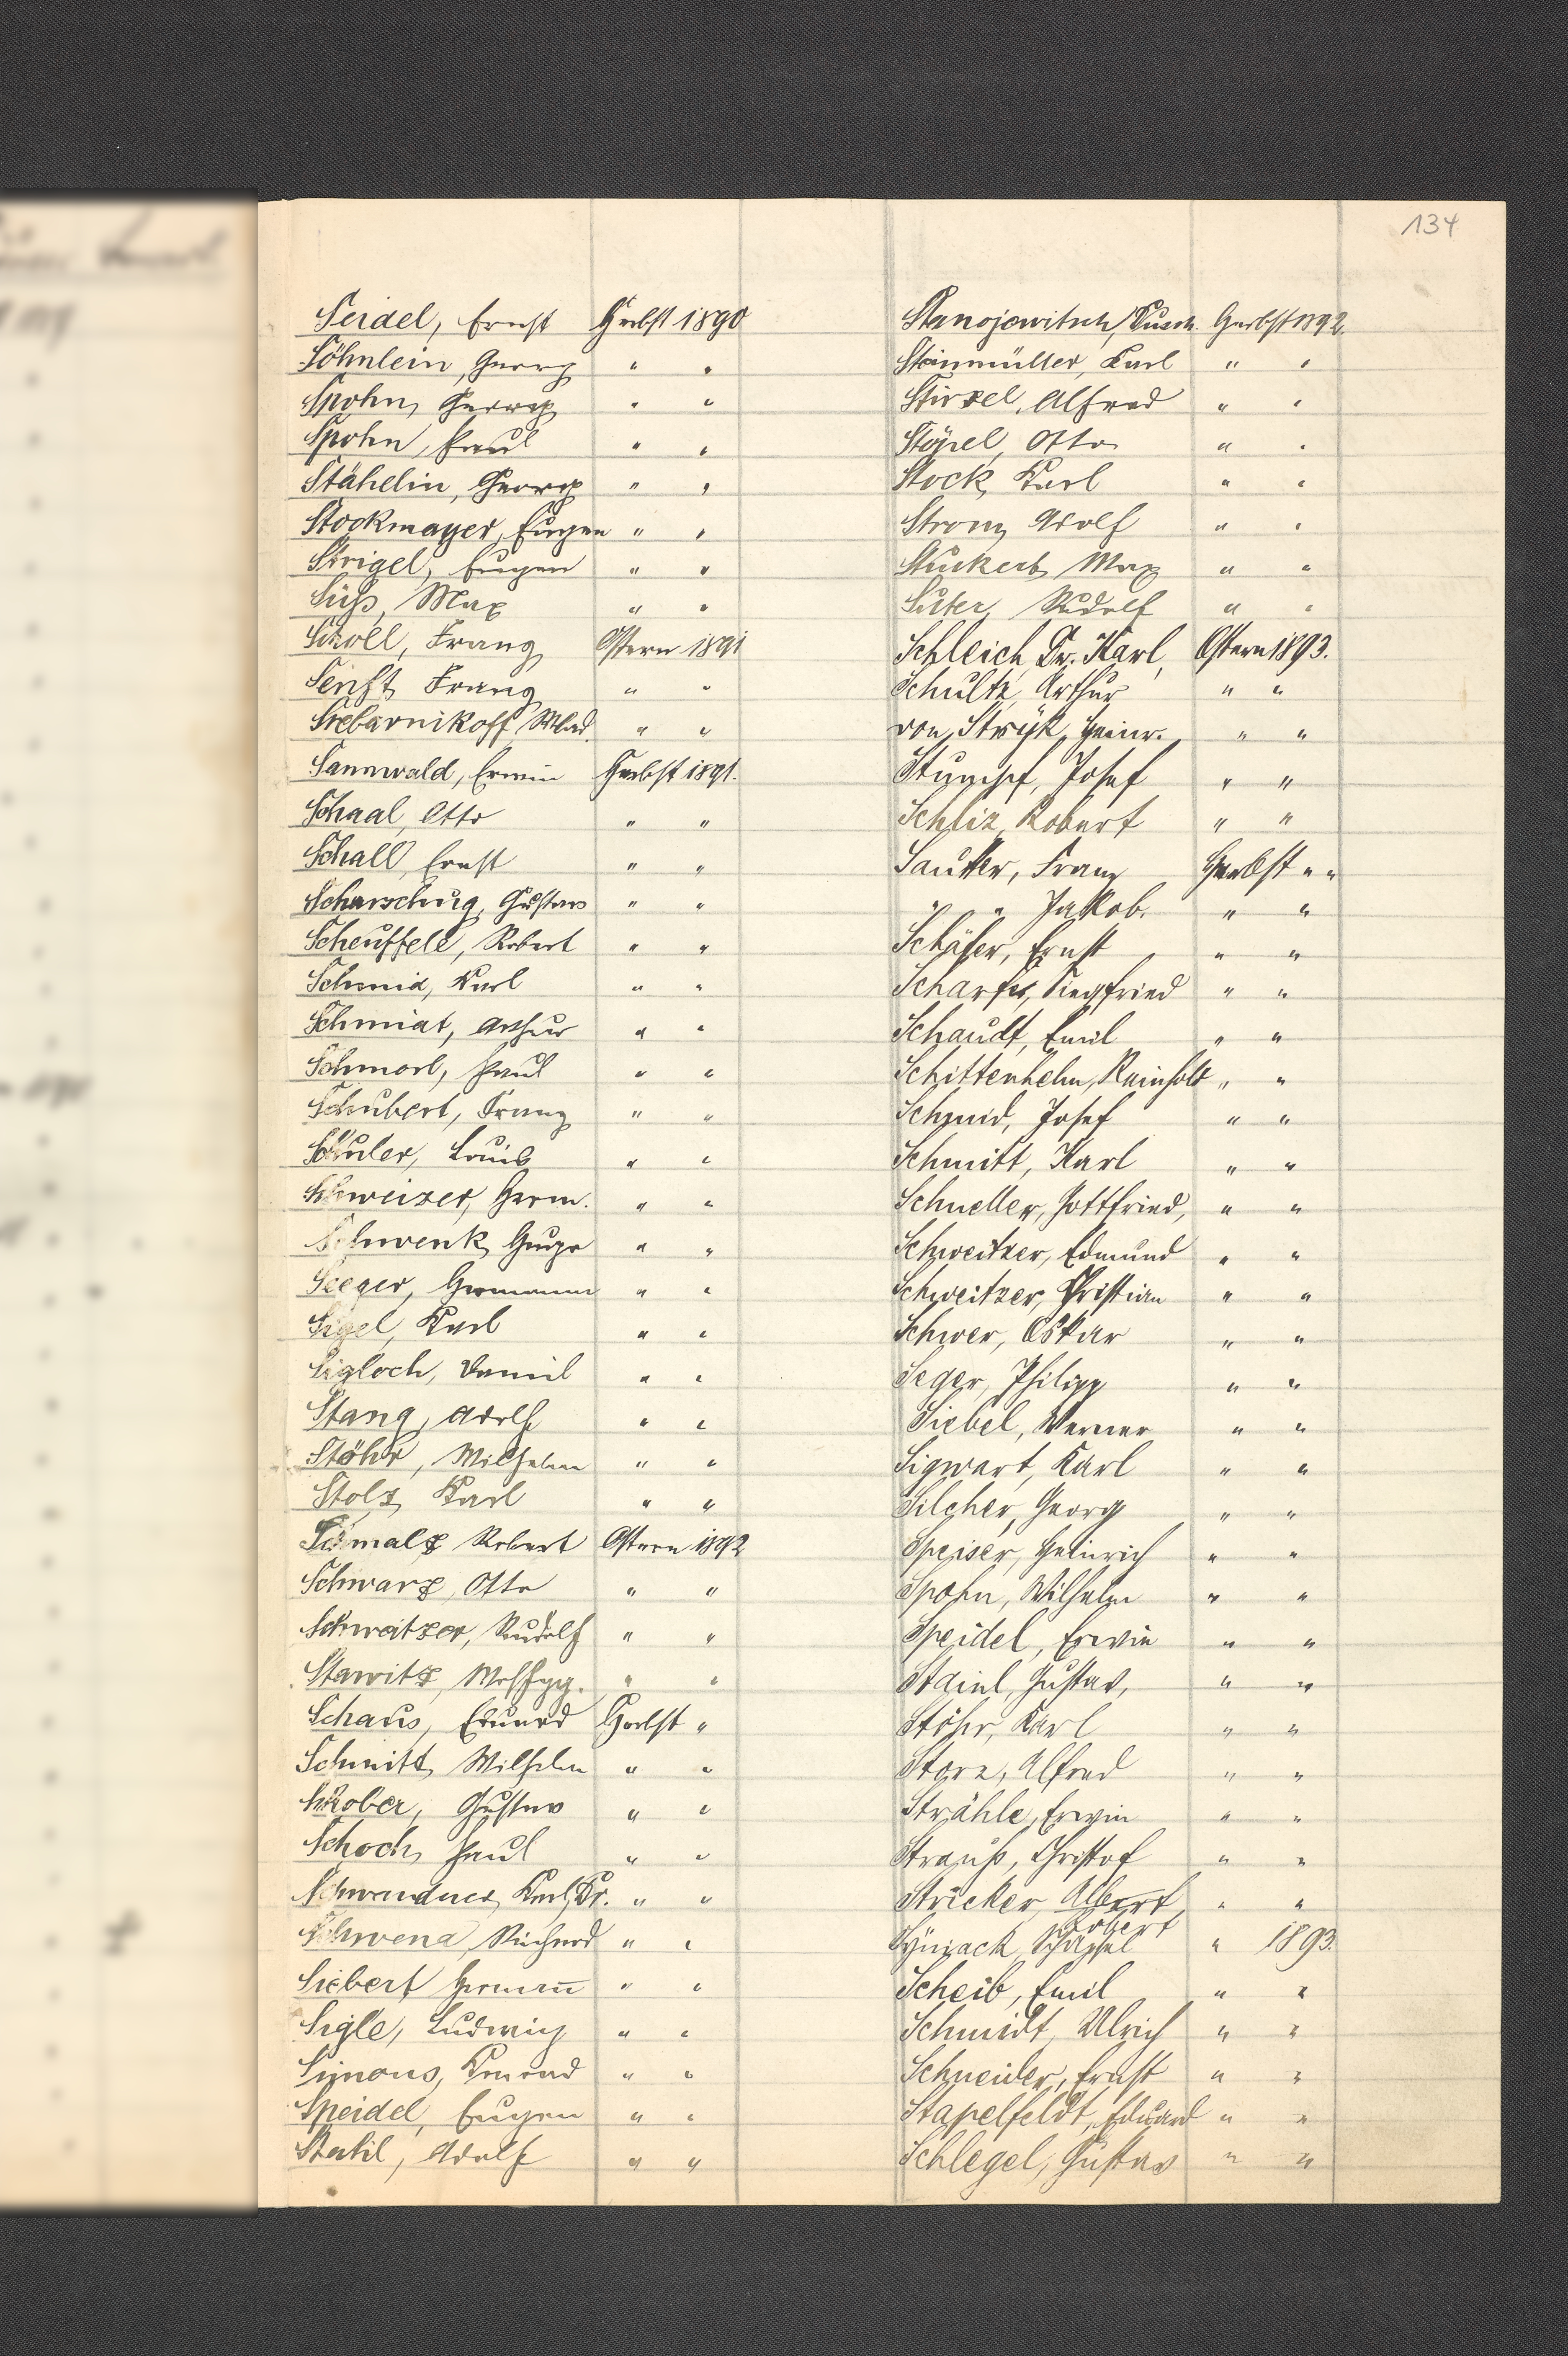 134
Seidel, Ernst Herbst 1890
Söhnlein, Georg " "
Spohn, Georg " "
Spohn, Paul " "
Stähelin, Georg " "
Stockmayer, Eugen " "
Strigel, Eugen " "
Süß, Max " "
Scholl, Franz Ostern 1891
Senft, Franz " "
Srebarnikoff, Wlad. " "
Sannwald, Erwin Herbst 1891.
Schaal, Otto " "
Schall, Ernst " "
Scharschug, Gustav " "
Scheuffele, Robert " "
Schmid, Karl " "
Schmidt, Arthur " "
Schmorl, Paul " "
Schubert, Franz " "
Schuler, Louis " "
Schweizer, Herm. " "
Schwenk, " "
Seeger, Hermann " "
Sigel, Karl " "
Sigloch, Daniel " "
Stang, Adolf " "
Stöhr, Wilhelm " "
Stolz, Karl " "
Schmalz, Robert Ostern 1892
Schwarz, Otto " "
Schweitzer, Rudolf " "
Stawitz, Wolfgg. " "
Schaus, Eduard Herbst "
Schmitt, Wilhelm " "
Schober, Gustav " "
Schoch, Paul " "
Schwendner, Karl, Dr. " "
Schwend, Richard " "
Siebert, Hermañ " "
Sigle, Ludwig " "
Simons, Konrad " "
Speidel, Eugen " "
Adolf " "
Stanojewitsch, Dusch. Herbst 1892.
Steinmüller, Karl " "
Stirzel, Alfred " "
Otto " "
Stock, Karl " "
Strom, Adolf " "
Stuckert, Max " "
Suter, Rudolf " "
Schleich, Dr. Karl, Ostern 1893.
Schultz, Arthur " "
von Stryk, Heinr. " "
Stumpf, Josef " "
Schliz, Robert " "
Sautter, Franz Herbst " "
" " Jakob. " "
Schäfer, Ernst " "
Scharff, Siegfried " "
Schaudt, Emil " "
Schittenhelm, Reinhold " "
Schmid, Josef " "
Schmitt, Karl " "
Schneller, Gottfried, " "
Schweitzer, Edmund " "
Schweitzer, Christian " "
Schwer, Oskar " "
Seger, Philipp " "
Siebel, Werner " "
Sigwart, Karl " "
Silcher, Georg " "
Speiser, Heinrich " "
Spohn, Wilhelm " "
Speidel, Erwin " "
Staiul, Gustav, " "
Stöhr, Karl " "
Storz, Alfred " "
Strähle, Erwin " "
Strauß, Christof " "
Stricker, Albert, " "
Robert
Schäffel " 1893.
Scheib, Emil " "
Schmidt, Ulrich " "
Schneider, Ernst " "
Stapelfeldt, Eduard " "
Schlegel, Gustav " "